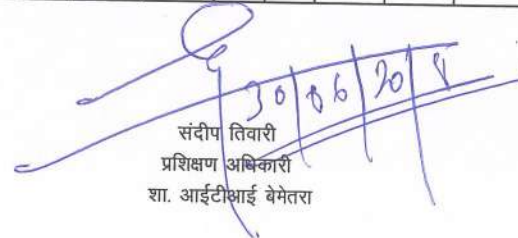 30|06|20
संदीप तिवारी
प्रशिक्षण अधिकारी
शा. आईटीआई बेमेतरा